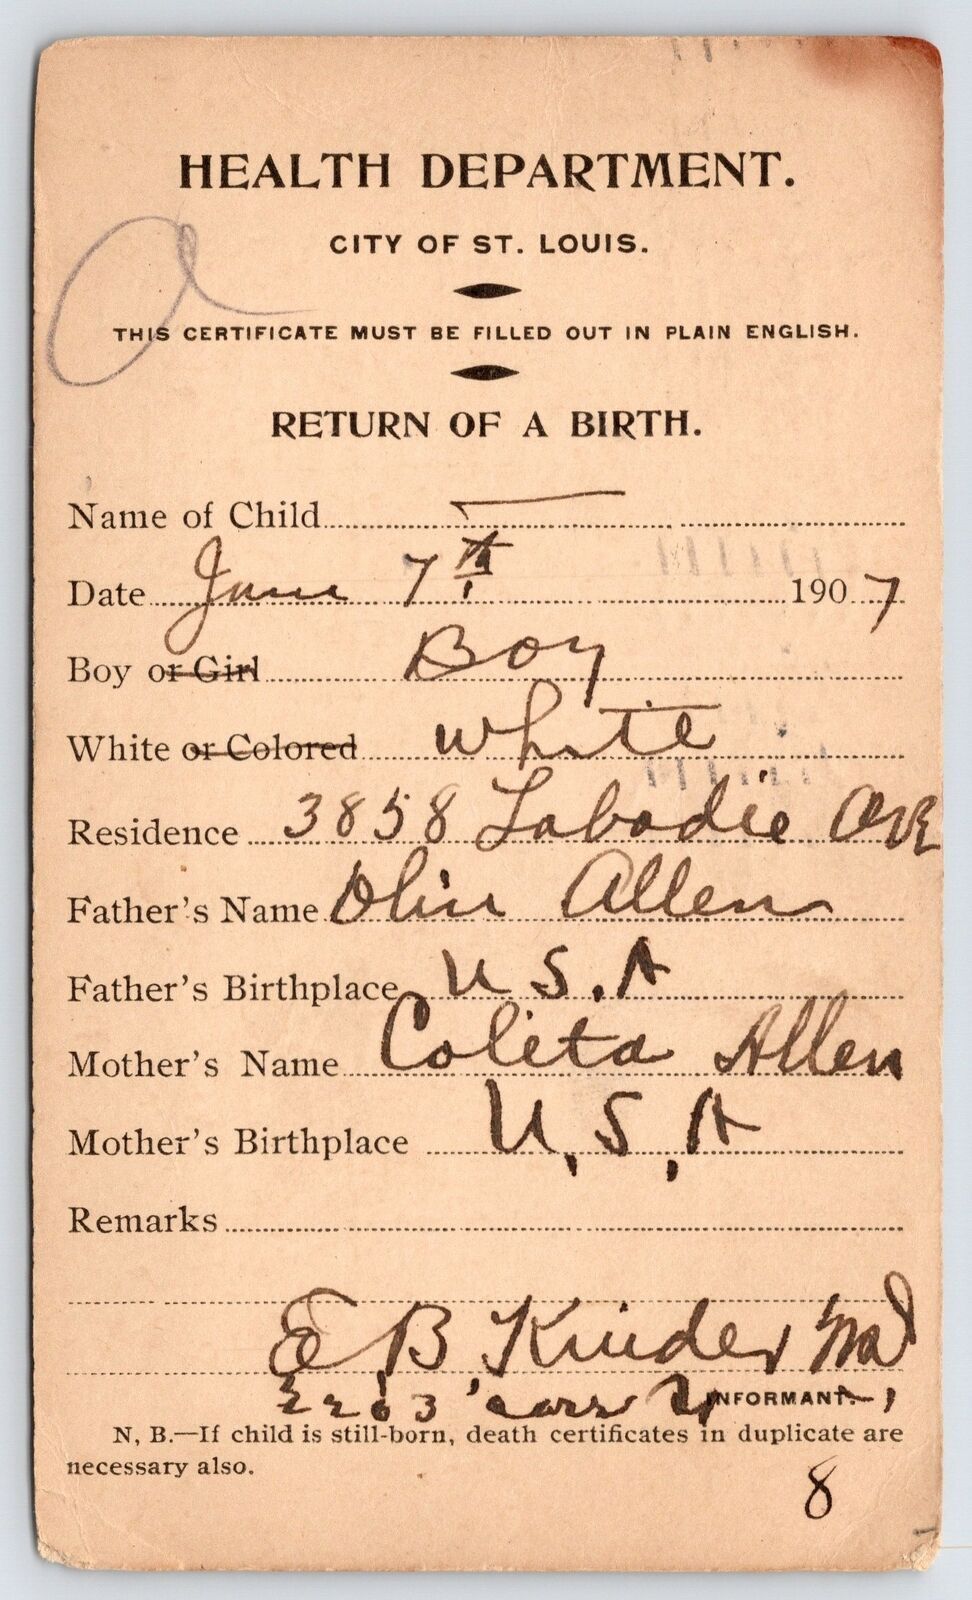 HEALTH DEPARTMENT.
CITY OF ST. LOUIS.
THIS CERTIFICATE MUST BE FILLED OUT IN PLAIN ENGLISH.
RETURN OF A BIRTH.
Name of Child
Date June 7th 1907
Boy or Girl Boy
White or Colored White
Residence 3858 Labadie Ave
Father's Name Olin Allen
Father's Birthplace U.S.A
Mother's Name Coleta Allen
Mother's Birthplace U.S.A
Remarks
E B Kinder Md
2203
INFORMANT.
N, B.—If child is still-born, death certificates in duplicate are
necessary also.
8